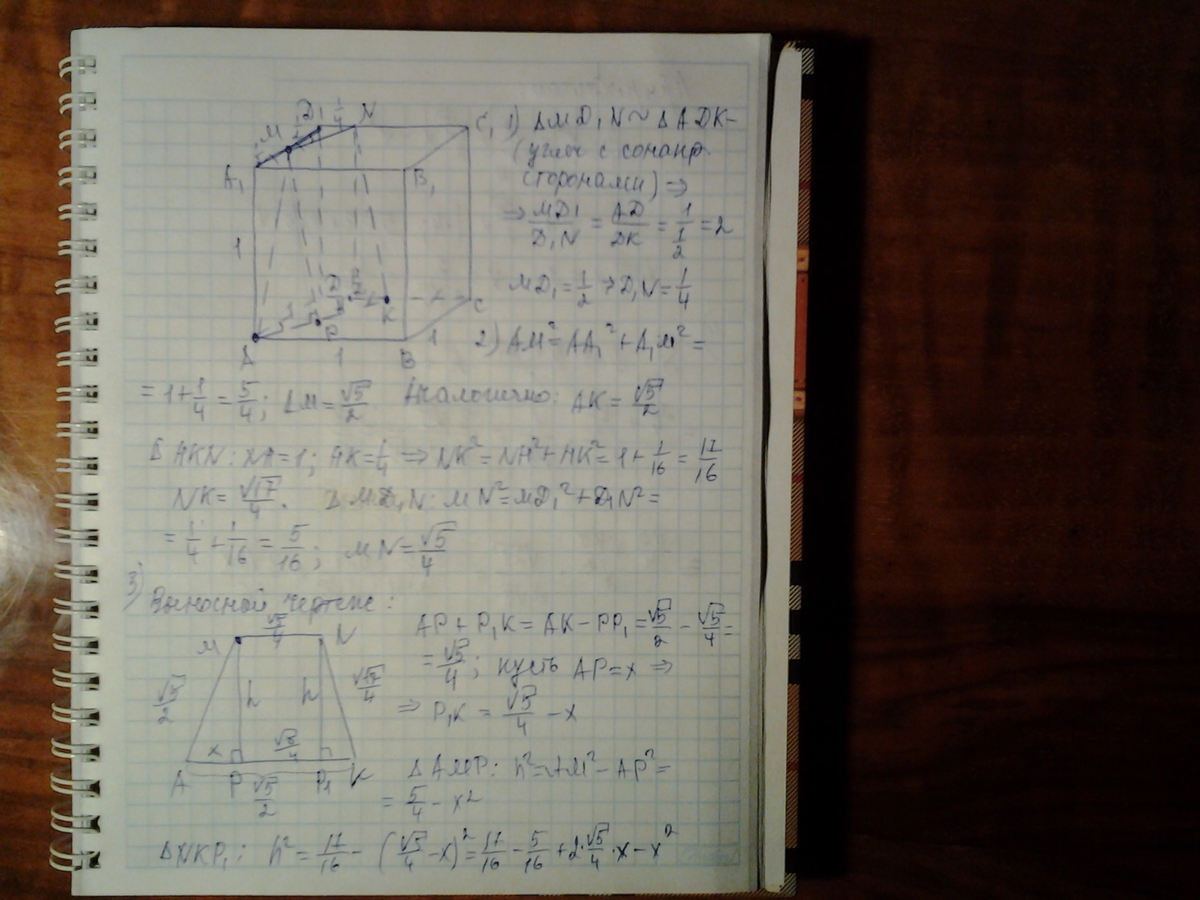 M D₁ 1/4 N C₁
1/2
A₁ B₁
1
D H K C
P
A 1 B 1
1) ΔMD₁N ~ ΔADK –
(углы с сонапр.
сторонами) ⇒
⇒ MD₁/D₁N = AD/DK = 1/(1/2) = 2
MD₁ = 1/2 ⇒ D₁N = 1/4
2) AM² = AA₁² + A₁M² =
= 1 + 1/4 = 5/4; AM = √5/2 Аналогично: AK = √5/2
ΔHKN: NH = 1; HK = 1/4 ⇒ NK² = NH² + HK² = 1 + 1/16 = 17/16
NK = √17/4. ΔMD₁N: MN² = MD₁² + D₁N² =
= 1/4 + 1/16 = 5/16; MN = √5/4
3) Выносной чертеж:
√5/4
M N
√5/2 h h √17/4
x √5/4
A P P₁ K
√5/2
AP + P₁K = AK – PP₁ = √5/2 – √5/4 =
= √5/4; пусть AP = x ⇒
⇒ P₁K = √5/4 – x
ΔAMP: h² = AM² – AP² =
= 5/4 – x²
ΔNKP₁: h² = 17/16 – (√5/4 – x)² = 17/16 – 5/16 + 2·√5/4·x – x²